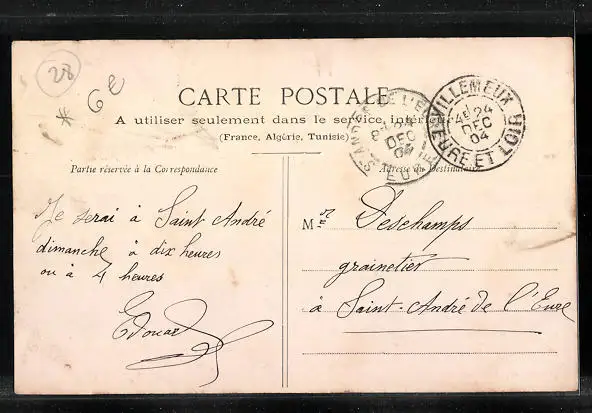 28
* 6€
CARTE POSTALE
A utiliser seulement dans le service intérieur
(France, Algérie, Tunisie)
Partie réservée à la Correspondance
Adresse du Destinataire
VILLEMEUX
24
DEC
04
EURE ET LOIR
24
DEC
04
EURE
Je serai à Saint André
dimanche à dix heures
ou à 4 heures
Edouard
M Deschamps
grainetier
à Saint-André de l'Eure